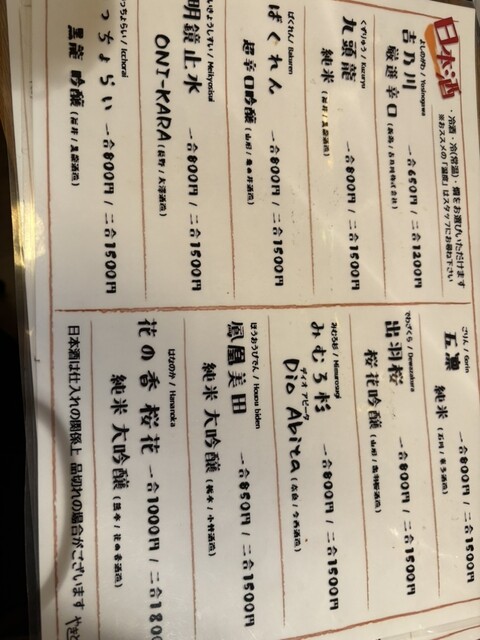 日本酒
・冷酒・冷(常温)・燗をお選びいただけます
※おススメの「温度」はスタッフにお尋ね下さい
よしのがわ / Yoshinogawa
吉乃川
厳選辛口(新潟/吉乃川株式会社)
一合650円 / 二合1200円
くずりゅう / Kuzuryu
九頭龍
純米(福井/黒龍酒造)
一合800円 / 二合1500円
ばくれん / Bakuren
ばくれん
超辛口吟醸(山形/亀の井酒造)
一合800円 / 二合1500円
めいきょうしすい / Meikyosisui
明鏡止水
ONI-KARA(長野/大澤酒造)
一合800円 / 二合1500円
っちょらい / Icchorai
っちょらい
黒龍 吟醸(福井/黒龍酒造)
一合800円 / 二合1500円
ごりん / Gorin
五凛
純米(石川/車多酒造)
一合800円 / 二合1500円
でわざくら / Dewazakura
出羽桜
桜花吟醸(山形/出羽桜酒造)
一合800円 / 二合1500円
みむろ杉 / Mimurosugi
みむろ杉
ディオ アビータ
Dio Abita(奈良/今西酒造)
一合800円 / 二合1500円
ほうおうびでん / Hoaou biden
鳳凰美田
純米大吟醸(栃木/小林酒造)
一合850円 / 二合1500円
はなのか / Hananoka
花の香 桜花
純米大吟醸(熊本/花の香酒造)
一合1000円 / 二合1800
日本酒は仕入れの関係上 品切れの場合がございます